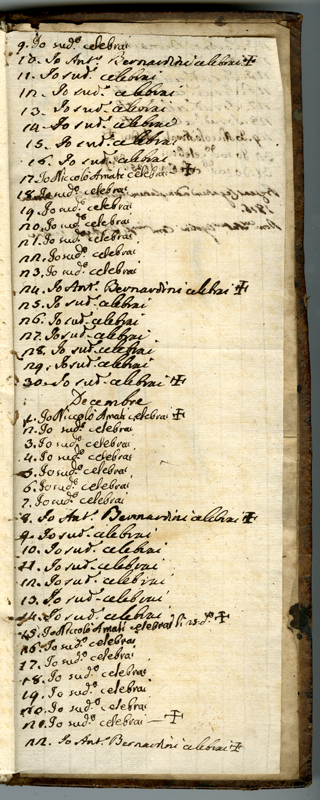 9. Io sud.º celebrai
10. Io Ant.º Bernardini celebrai ✠
11. Io sud.º celebrai
12. Io sud.º celebrai
13. Io sud.º celebrai
14. Io sud.º celebrai
15. Io sud.º celebrai
16. Io sud.º celebrai
17. Io Niccolò Amati celebrai ✠
18. Io sud.º celebrai
19. Io sud.º celebrai
20. Io sud.º celebrai
21. Io sud.º celebrai
22. Io sud.º celebrai
23. Io sud.º celebrai
24. Io Ant.º Bernardini celebrai ✠
25. Io sud.º celebrai
26. Io sud.º celebrai
27. Io sud.º celebrai
28. Io sud.º celebrai
29. Io sud.º celebrai
30. Io sud.º celebrai ✠
Decembre
1. Io Niccolò Amati celebrai ✠
2. Io sud.º celebrai
3. Io sud.º celebrai
4. Io sud.º celebrai
5. Io sud.º celebrai
6. Io sud.º celebrai
7. Io sud.º celebrai
8. Io Ant.º Bernardini celebrai ✠
9. Io sud.º celebrai
10. Io sud.º celebrai
11. Io sud.º celebrai
12. Io sud.º celebrai
13. Io sud.º celebrai
14. Io sud.º celebrai ✠
15. Io Niccolò Amati celebrai
16. Io sud.º celebrai
17. Io sud.º celebrai
18. Io sud.º celebrai
19. Io sud.º celebrai
20. Io sud.º celebrai
21. Io sud.º celebrai — ✠
22. Io Ant.º Bernardini celebrai ✠